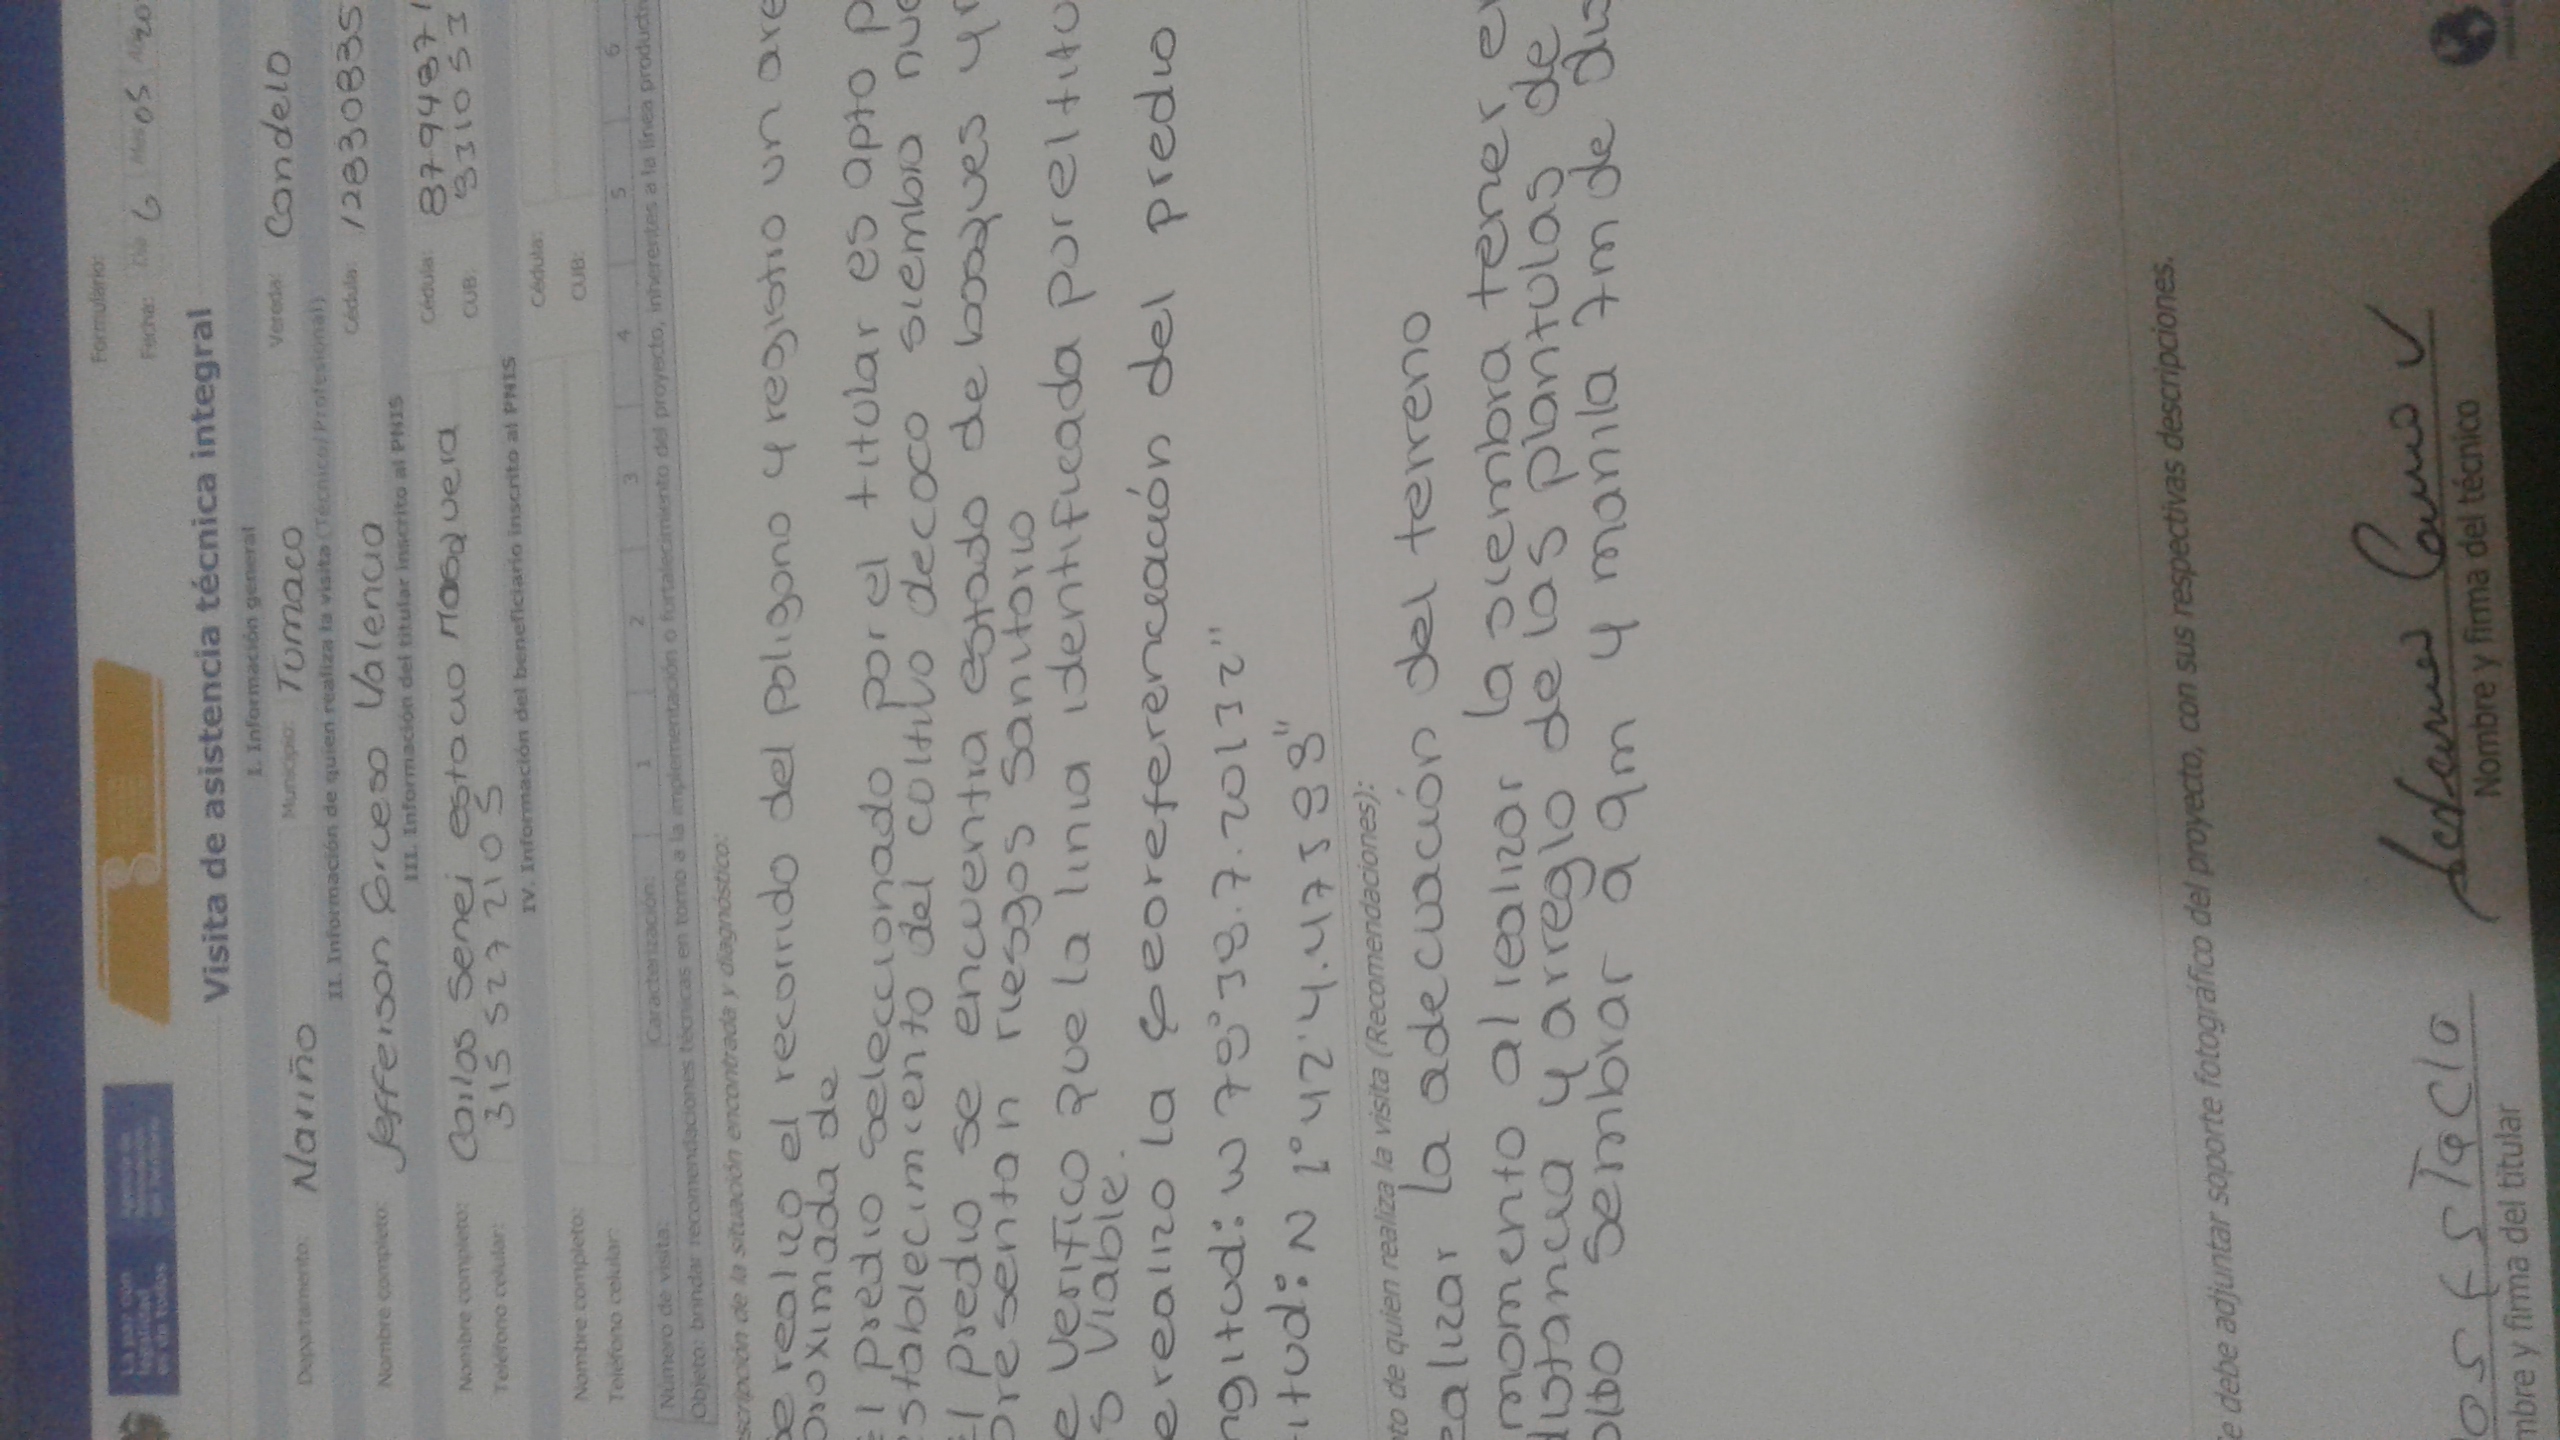 Formulario:
Fecha: Día 6 Mes 05 Año 20
Visita de asistencia técnica integral
I. Información general
Departamento: Nariño Municipio: Tumaco Vereda: Candelo
II. Información de quien realiza la visita (Técnico/Profesional)
Nombre completo: Jefferson Grueso Valencia Cédula: 12830835
III. Información del titular inscrito al PNIS
Nombre completo: Carlos Senei estacio Mosquera Cédula: 8794871
Teléfono celular: 3155272105 CUB: 931053
IV. Información del beneficiario inscrito al PNIS
Nombre completo: Cédula:
Teléfono celular: CUB:
Número de visita: Caracterización: 1 2 3 4 5 6
Objeto: brindar recomendaciones técnicas en torno a la implementación o fortalecimiento del proyecto, inherentes a la línea producti
scripción de la situación encontrada y diagnóstico:
se realizo el recorrido del poligono y registro un are
proximada de
El predio seleccionado por el titular es apto p
establecimiento del coltivo de coco siembra nue
El predio se encuentra estado de bosques y n
presentan riesgos sanitario
e verifico que la linia identificada por el titu
s viable.
e realizo la georeferenciación del predio
ngitud: W 79°39.7.20132"
itud: N 1°42'4.47599"
to de quien realiza la visita (Recomendaciones):
ealizar la adecuación del terreno
momento al realizar la siembra tener e
distancia y arreglo de las plantulas de
olbo sembrar a 9m y manila 7m de dis
e debe adjuntar soporte fotográfico del proyecto, con sus respectivas descripciones.
los EsTaCio
mbre y firma del titular Nombre y firma del técnico